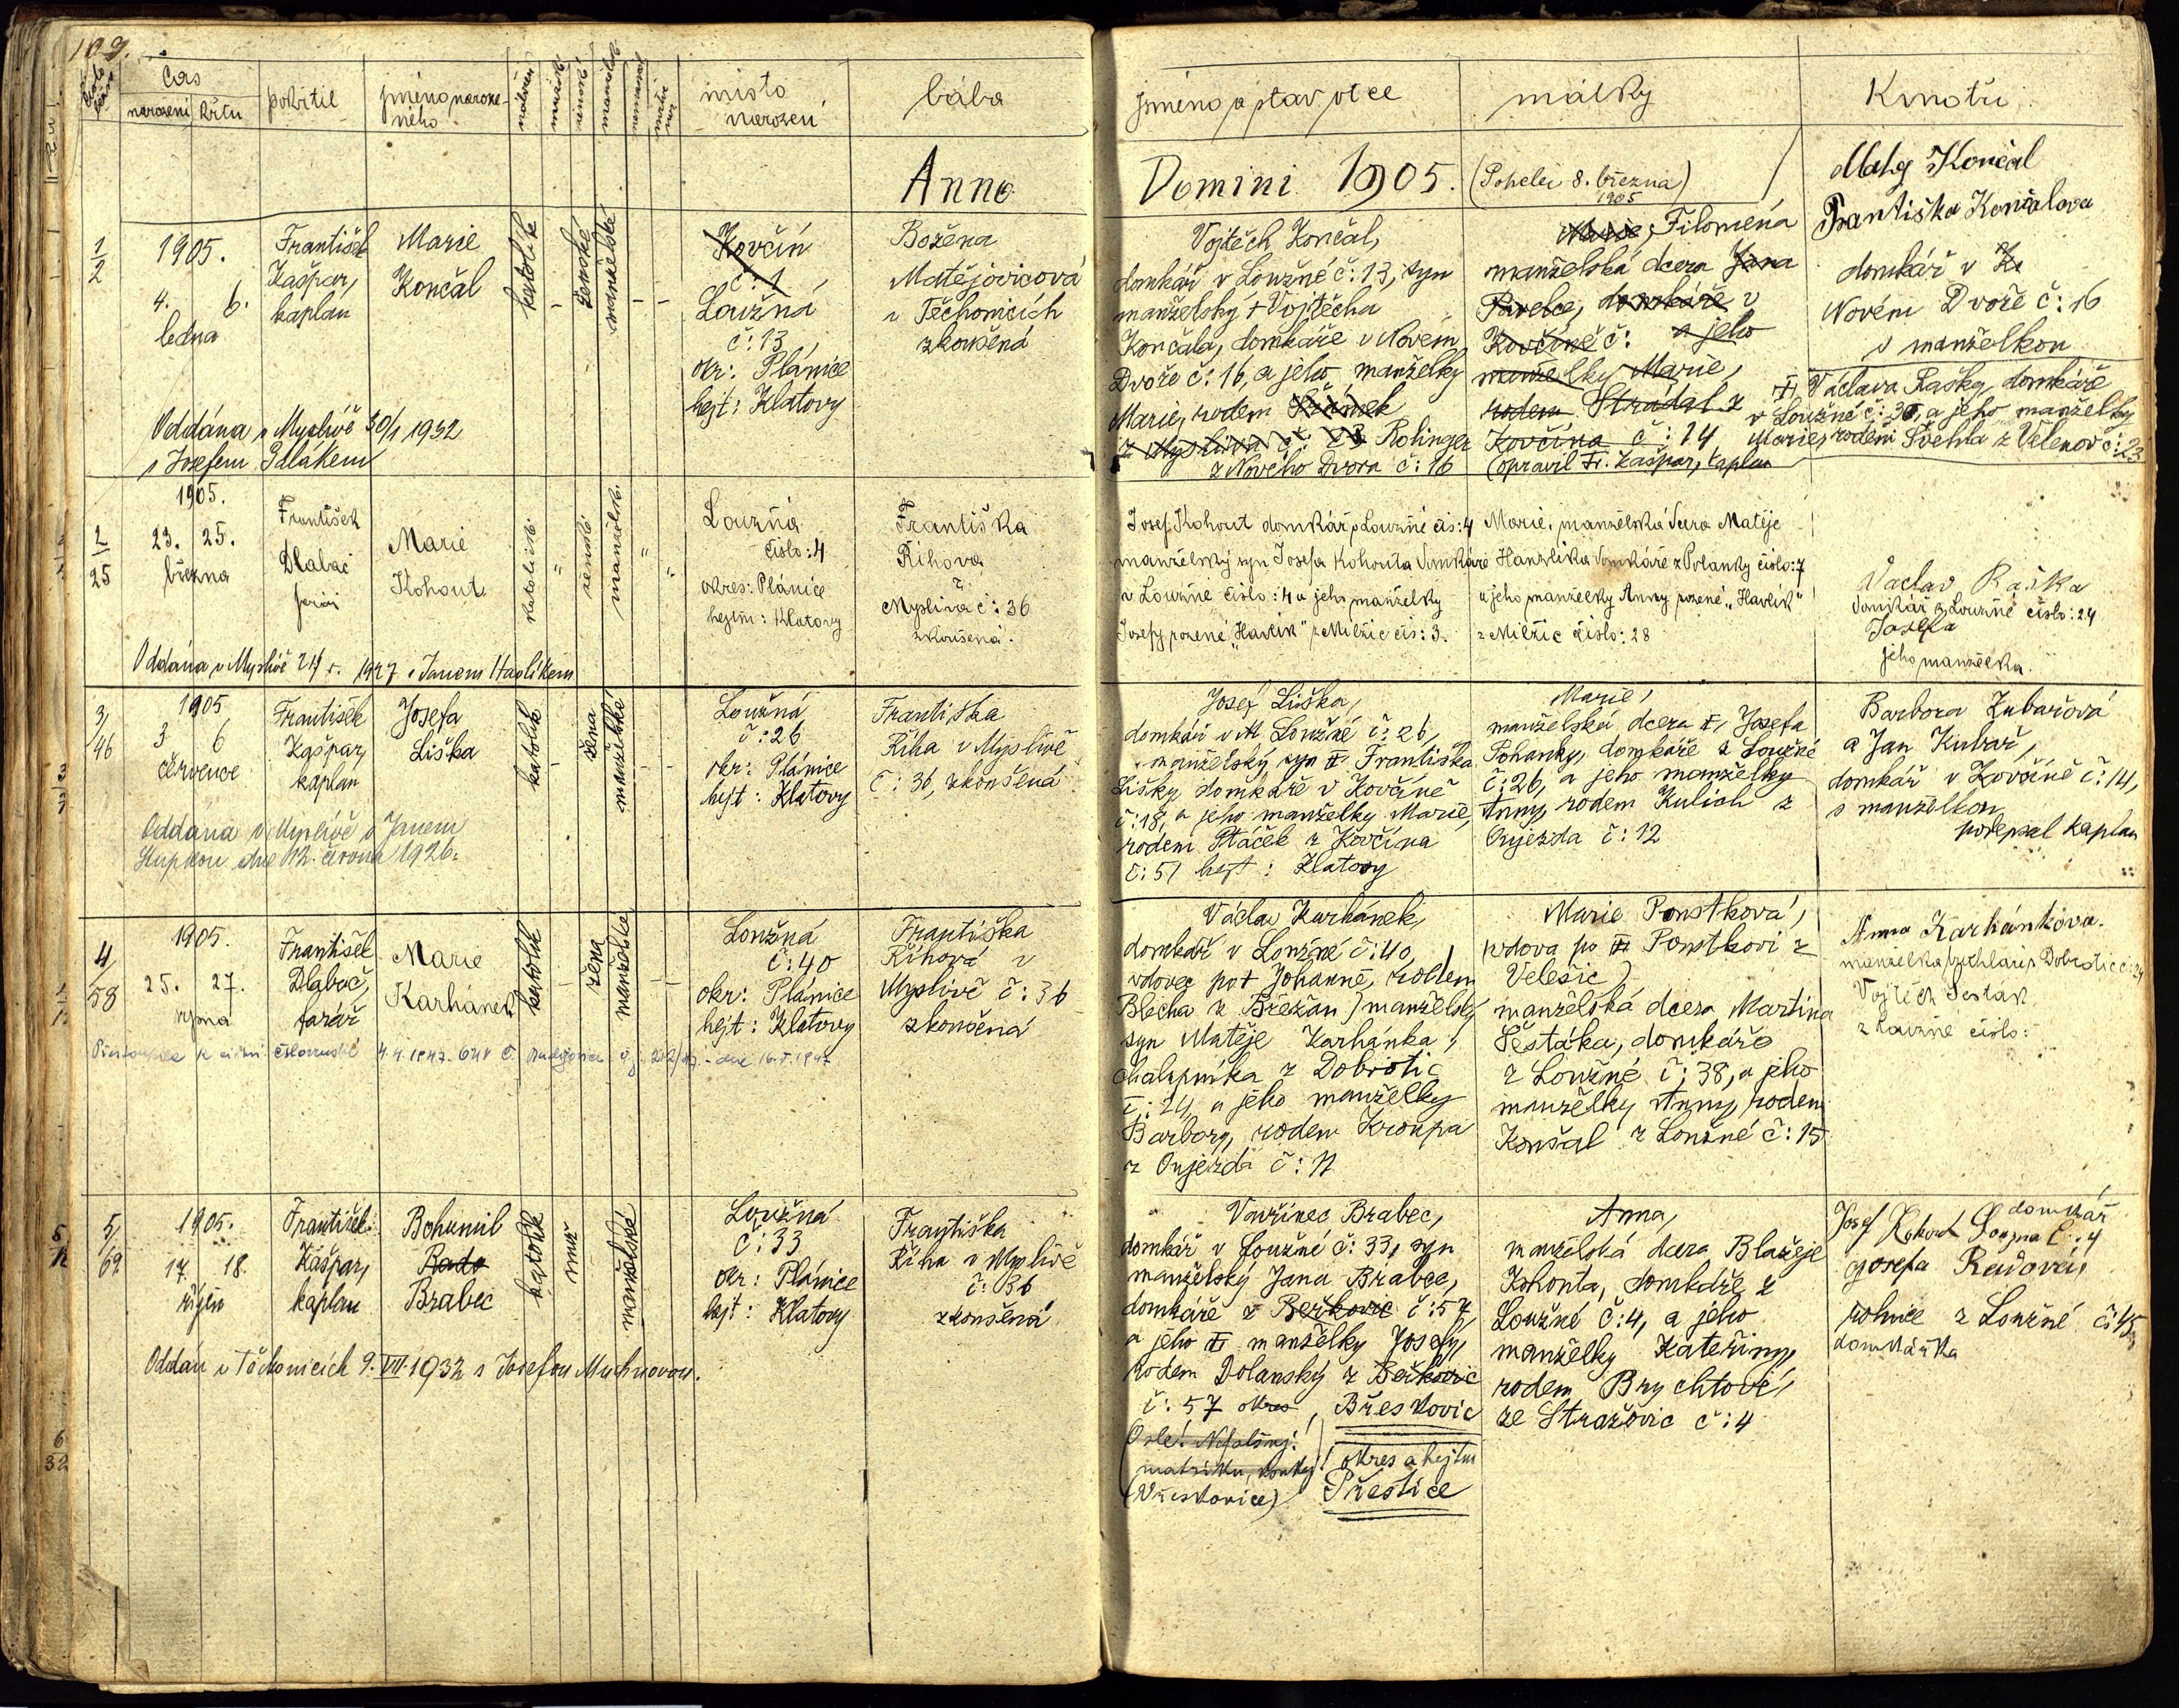 109.
Čas
narození křtu
pokřtil
jméno narozeného
místo
narození
bába
jméno a stav otce
matky
Kmotři
Anno
Domini 1905.
(Pohelei 8. března)
1905
Matěj Končal
Františka Končalova
domkář v
Novém Dvoře č: 16
s manželkou
1/2
1905.
4. 6.
ledna
František
Kašpar,
kaplan
Marie
Končal
katolík
ženské
manželské
Kovčín
č: 1
Loužná
č: 13,
okr: Plánice
hejt: Klatovy
Božena
Matějovicová
v Těchonicích
zkoušená
Oddána v Myslívě 30/1 1932
s Josefem Sedlákem
Vojtěch Končal,
domkář v Loužné č: 13, syn
manželský + Vojtěcha
Končala, domkáře v Novém
Dvoře č: 16, a jeho manželky
Marie, rodem
z Myslíva č: 23 Rolinger
z Nového Dvora č: 16
Marie, Filomena
manželská dcera Jana
Pavelce, domkáře v
Kovčíně č: a jeho
manželky Marie,
rodem Stradal z
Kovčína č: 14
(opravil Fr. Kašpar, kaplan
Václava Rašky, domkáře
v Loužné č: 36, a jeho manželky
Marie, rodem Švehla z Velenov č: 23
2/25
1905.
23. 25.
března
František
Dlabač
farář
Marie
Kohout
katolické
ženské
manželské
Loužná
číslo: 4
okres: Plánice
hejtm: Klatovy
Františka
Říhova
z
Myslíva č: 36
zkoušená.
Oddána v Myslívě 24/5. 1927 s Janem Havlíkem
Josef Kohout domkář z Loužné čís: 4
manželský syn Josefa Kohouta domkáře
v Loužné číslo: 4 a jeho manželky
Josefy rozené „Havlík" z Milžic čís: 3.
Marie, manželská dcera Matěje
Hanzlíka domkáře z Polanky číslo: 7
a jeho manželky Anny rozené „Havlík"
z Milžic číslo: 28
Václav Raška
domkář z Loužné číslo: 24
Josefa
jeho manželka.
3/46
1905
3 6
července
František
Kašpar,
kaplan
Josefa
Liška
katolík
žena
manželské
Loužná
č: 26
okr: Plánice
hejt: Klatovy
Františka
Říha v Myslívě
č: 36, zkoušená
Oddána v Myslívě s Janem
Krupkou dne 12. června 1926.
Josef Liška,
domkář v Loužné č: 26,
manželský syn Františka
Lišky, domkáře v Kovčíně
č: 18, a jeho manželky Marie,
rodem Ptáček z Kovčína
č: 51 hejt: Klatovy
Marie,
manželská dcera Josefa
Pohanky, domkáře z Loužné
č: 26, a jeho manželky
Anny, rodem Kulich z
Oujezda č: 12
Barbora Kubařová
a Jan Kubař,
domkář v Kovčíně č: 14,
s manželkou
podepsal kaplan
4/58
1905.
25. 27.
srpna
František
Dlabač,
farář
Marie
Karhánek
katolík
žena
manželské
Loužná
č: 40
okr: Plánice
hejt: Klatovy
Františka
Říhová v
Myslívě č: 36
zkoušená
Václav Karhánek,
domkář v Loužné č: 40,
vdovec po + Johanně, rodem
Blecha z Břežan) manželský
syn Matěje Karhánka,
chalupníka z Dobrotic
č: 24, a jeho manželky
Barbory, rodem Kroupa
z Oujezda č: 11
Marie Poustková,
vdova po Poustkovi z
Velešic)
manželská dcera Martina
Šestáka, domkáře
z Loužné č: 38, a jeho
manželky Anny, rodem
Končal z Loužné č: 15
Anna Karhánkova.
manželka z Dobrotic č: 24
Vojtěch Šesták
z Loužné číslo:
5/69
1905.
17. 18.
října
František
Kašpar,
kaplan
Bohumil
Rado
Brabec
katolík
muž
manželské
Loužná
č: 33
okr: Plánice
hejt: Klatovy
Františka
Říha v Myslívě
č: 36
zkoušená
Oddán v Těchonicích 9. VII 1932 s Josefou Muchnovou.
Vavřinec Brabec,
domkář v Loužné č: 33, syn
manželský Jana Brabce,
domkáře z Berkovic č: 57,
a jeho manželky Josefy,
rodem Dolanský z Berkovic
č: 57 okres, Břeskovic
Osle! Nefalšuj!
matriku,
(Vřeskovice)
okres a hejtm
Přestice
Anna,
manželská dcera Blažeje
Kohouta, domkáře z
Loužné č: 4, a jeho
manželky Kateřiny,
rodem Brychtové,
ze Stražovic č: 4
domkář
Josef Kohout Loužná č: 4
Josefa Radová,
rolnice z Loužné č: 45
domkářka